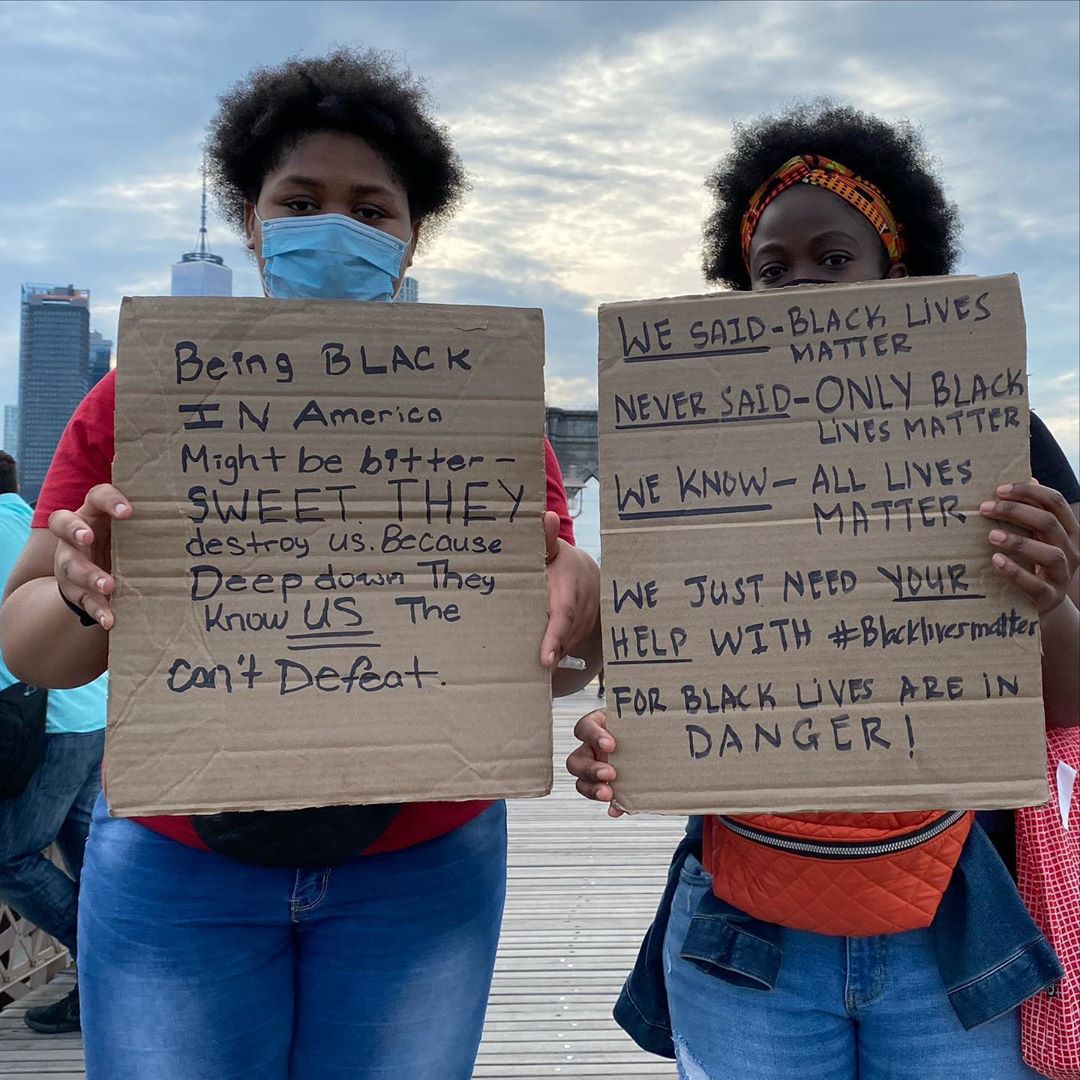 Being BLACK
IN America
Might be bitter-
SWEET. THEY
destroy us. Because
Deep down They
Know US The
can't Defeat.
WE SAID-BLACK LIVES
MATTER
NEVER SAID-ONLY BLACK
LIVES MATTER
WE KNOW- ALL LIVES
MATTER
WE JUST NEED YOUR
HELP WITH #Blacklivesmatter
FOR BLACK LIVES ARE IN
DANGER!